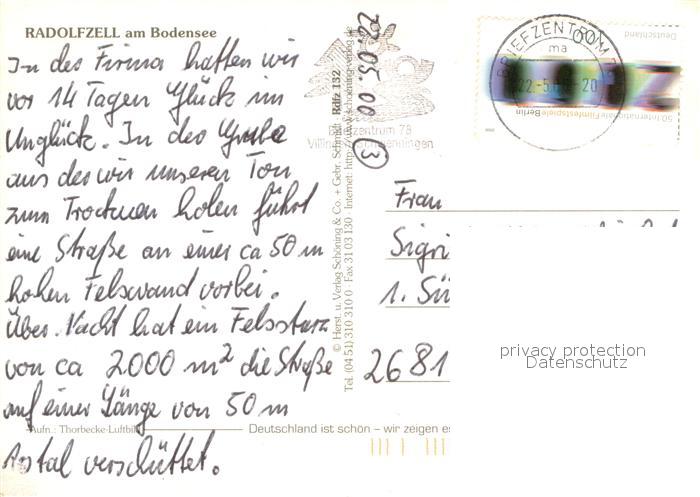 RADOLFZELL am Bodensee
In der Firma hatten wir
vor 14 Tagen Glück im
Unglück. In der Grube
aus der wir unseren Ton
zum Trocknen holen führt
eine Straße an einer ca 50 m
hohen Felswand vorbei.
Über Nacht hat ein Felssturz
von ca 2000 m² die Straße
auf einer Länge von 50 m
total verschüttet.
Aufn.: Thorbecke-Luftbild
22.05.00
3
© Herst. u. Verlag Schöning & Co. + Gebr. Schmidt
Rdfz 132
Tel. (04 51) 310 310 0 · Fax 31 03 130 · Internet:
Briefzentrum 78
Villingen-Schwenningen
BRIEFZENTRUM 78
ma
22.-5.
20
Deutschland
50. Internationale Filmfestspiele Berlin
Frau
Sigri
1. Sü
2681
privacy protection
Datenschutz
Deutschland ist schön – wir zeigen es